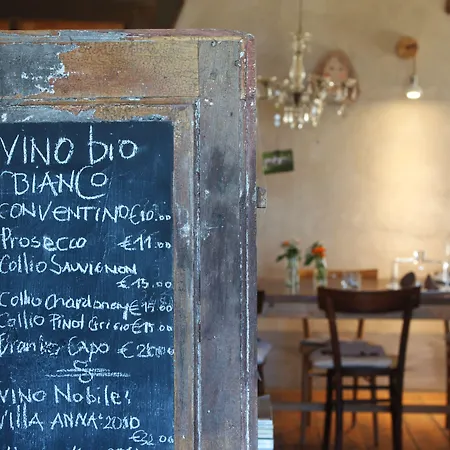 VINO bio
BIANCO
CONVENTINO €10.00
Prosecco €11.00
Collio Sauvignon
€15.00
Collio Chardonnay €15.00
Collio Pinot Grigio €15.00
Capo
VINO NOBILE
VILLA ANNA 2010
€32.00